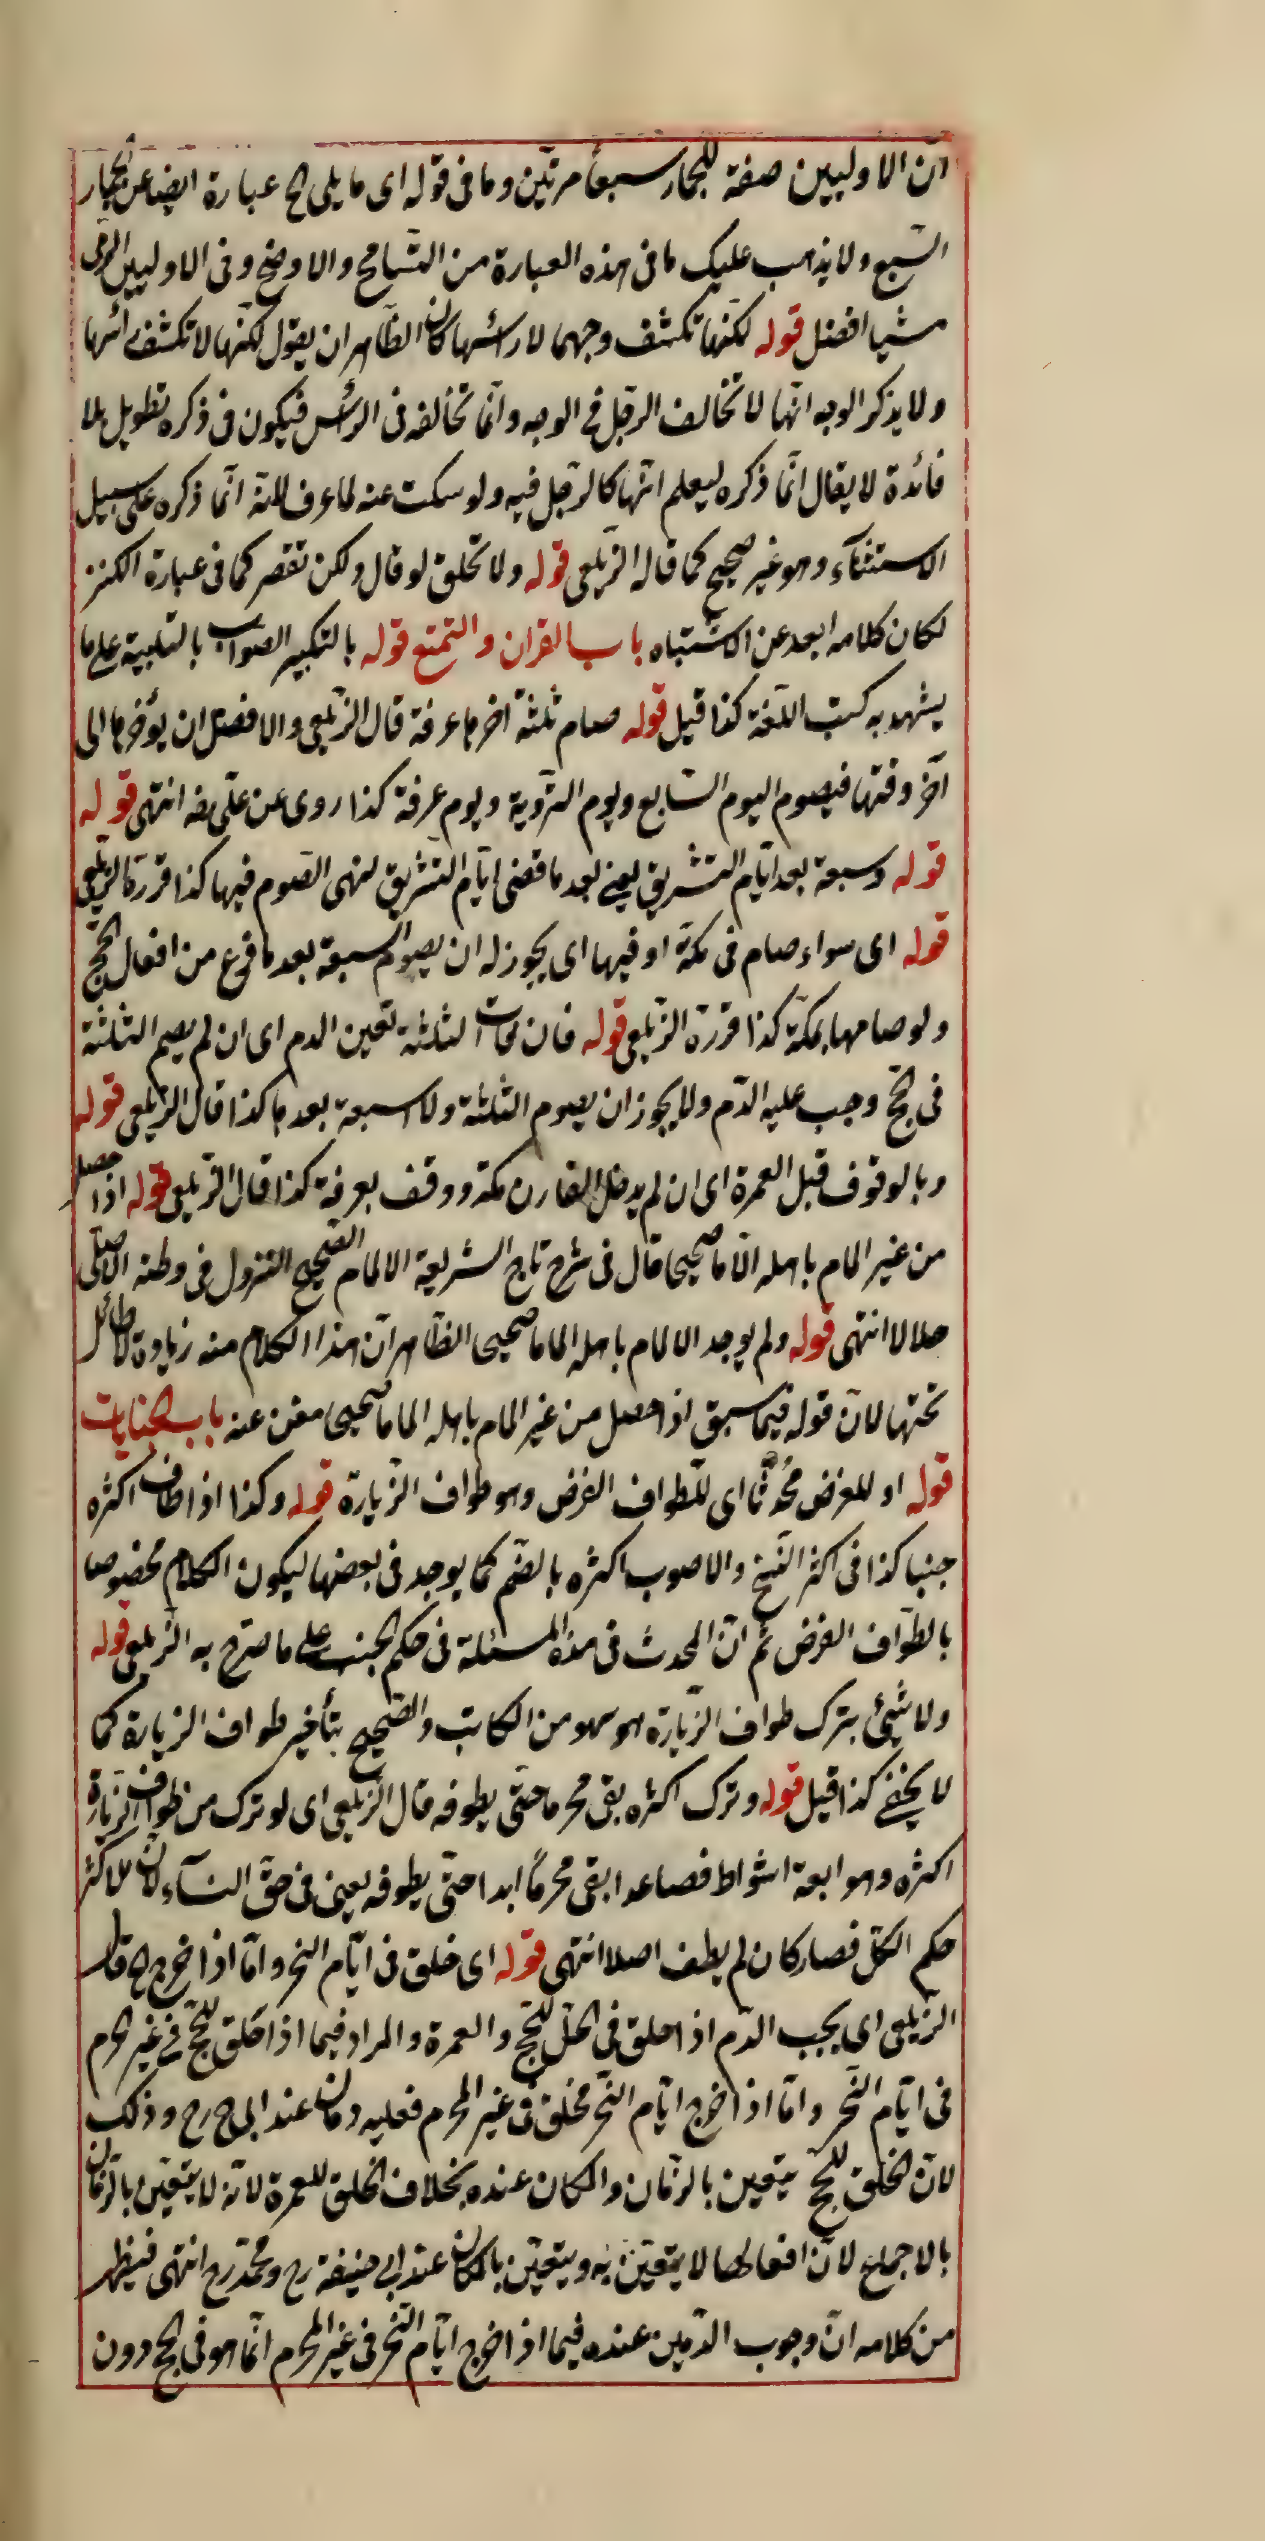 ان الاوليين صفة للجمار سبعا مرتين وما فى قوله اى ما يلى الخ عبارة ايضا عن الجمار
السبع ولا يذهب عليك ما فى هذه العبارة من التسامح والاوضح وفى الاوليين الرمى
مشيا افضل قوله لكنها تكشف وجهها لا رأسها كان الظاهر ان يقول لكنها لا تكشف رأسها
ولا يذكر الوجه انها لا تخالف الرجل فى الوجه وانما تخالفه فى الرأس فيكون فى ذكره تطويل بلا
فائدة لا يقال انما ذكره ليعلم انها كالرجل فيه ولو سكت عنه لما عرف لانه انما ذكره على سبيل
الاستثناء وهو غير صحيح كما قاله الزيلعى قوله ولا تحلق لو قال ولكن تقصر كما فى عبارة الكنز
لكان كلامه ابعد عن الاشتباه باب القران والتمتع قوله بالتكبير الصواب بالتلبية على ما
يشهد به كتب اللغة كذا قيل قوله صام ثلثة اخرها عرفة قال الزيلعى والافضل ان يؤخرها الى
آخر وقتها فيصوم اليوم السابع ويوم التروية ويوم عرفة كذا روى عن على رضه انتهى قوله
قوله وسبعة بعد ايام التشريق يعنى بعد ما قضى ايام التشريق لنهى الصوم فيها كذا قرره الزيلعى
قوله اى سواء صام فى مكة او فيها اى يجوز له ان يصوم السبعة بعد ما فرغ من افعال الحج
ولو صامها بمكة كذا قرره الزيلعى قوله فان فات الثلثة تعين الدم اى ان لم يصم الثلثة
فى الحج وجب عليه الدم ولا يجوز ان يصوم الثلثة ولا سبعة بعدها كذا قال الزيلعى قوله
وبالوقوف قبل العمرة اى ان لم يدخل القارن مكة ووقف بعرفة كذا قال الزيلعى قوله اذا حصل
من غير المام باهله الماما صحيحا قال فى شرح تاج الشريعة الالمام الصحيح النزول فى وطنه الاصلى
حلالا انتهى قوله ولم يوجد الالمام باهله الماما صحيحا الظاهر ان هذا الكلام منه زيادة لا طائل
تحتها لان قوله فيما سبق اذا حصل من غير المام باهله الماما صحيحا مغن عنه باب الجنايات
قوله او للفرض محدثا اى للطواف الفرض وهو طواف الزيارة قوله وكذا اذا طاف اكثره
جنبا كذا فى اكثر النسخ والاصوب اكثره بالضم كما يوجد فى بعضها ليكون الكلام مخصوصا
بالطواف الفرض ثم ان المحدث فى هذه المسئلة فى حكم الجنب على ما صرح به الزيلعى قوله
ولا شيئ بترك طواف الزيارة هو سهو من الكاتب والصحيح بتأخير طواف الزيارة كما
لا يخفى كذا قيل قوله وترك اكثره بقى محرما حتى يطوفه قال الزيلعى اى لو ترك من طواف الزيارة
اكثره وهو ابعة اشواط فصاعدا بقى محرما ابدا حتى يطوفه يعنى فى حق النسآء لان للاكثر
حكم الكل فصار كان لم يطف اصلا انتهى قوله اى خلق فى ايام النحر واما اذا خرج الخ قال
الزيلعى اى يجب الدم اذا حلق فى الحل للحج والعمرة والمراد فيما اذا حلق للحج فى غير الحرم
فى ايام النحر واما اذا خرج ايام النحر فحلق فى غير الحرم فعليه دمان عند ابى ح رح وذلك
لان الحلق للحج يتعين بالزمان والمكان عنده بخلاف الحلق للعمرة لانه لا يتعين بالزمان
بالاجماع لان افعالها لا يتعين به ويتعين بالمكان عند ابى حنيفة رح ومحمد رح انتهى فيظهر
من كلامه ان وجوب الدمين عنده فيما اذا خرج ايام النحر فى غير الحرم انما هو فى الحج دون